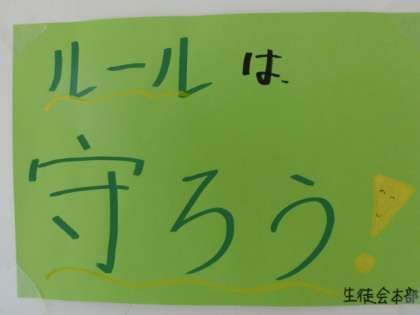 ルールは、
守ろう!
生徒会本部